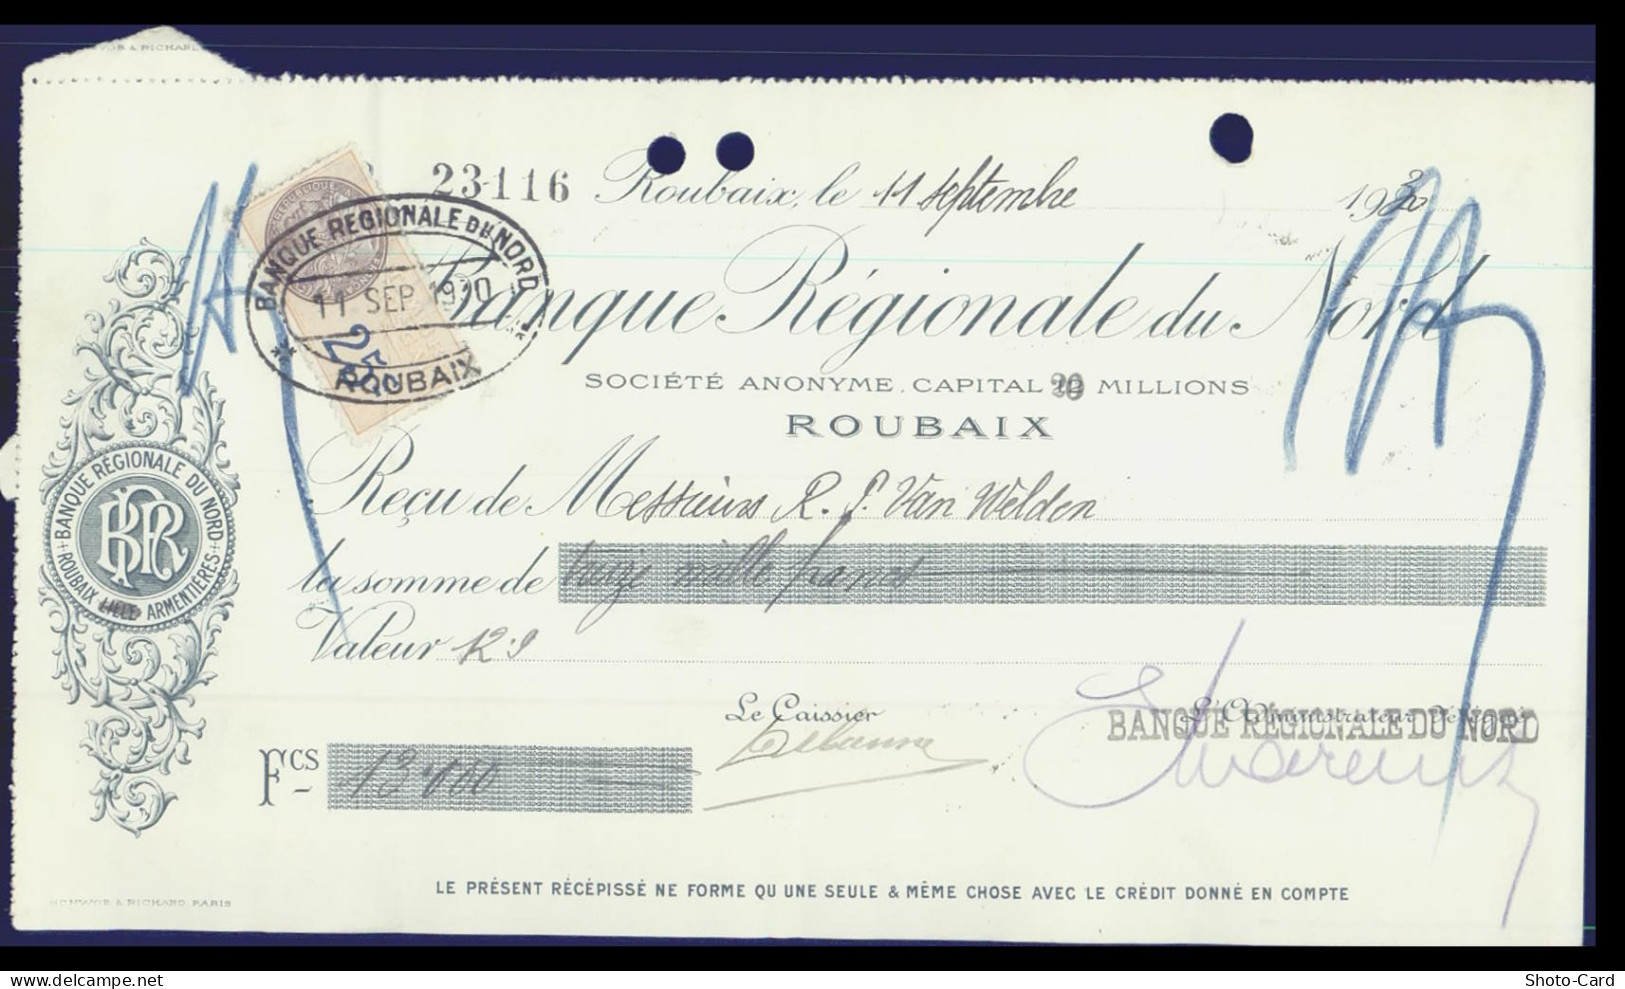 23116 Roubaix, le 11 septembre 1930
BANQUE RÉGIONALE DU NORD
11 SEP 1930
ROUBAIX
25c
Banque Régionale du Nord
SOCIÉTÉ ANONYME. CAPITAL 20 MILLIONS
ROUBAIX
Reçu de Messieurs R. P. Van Welden
la somme de treize mille francs
Valeur 12.9
BANQUE RÉGIONALE DU NORD
BRN
ROUBAIX LILLE ARMENTIÈRES
Le Caissier
BANQUE RÉGIONALE DU NORD
Fcs 13.000
LE PRÉSENT RÉCÉPISSÉ NE FORME QU UNE SEULE & MÊME CHOSE AVEC LE CRÉDIT DONNÉ EN COMPTE
& RICHARD PARIS
Shoto-Card